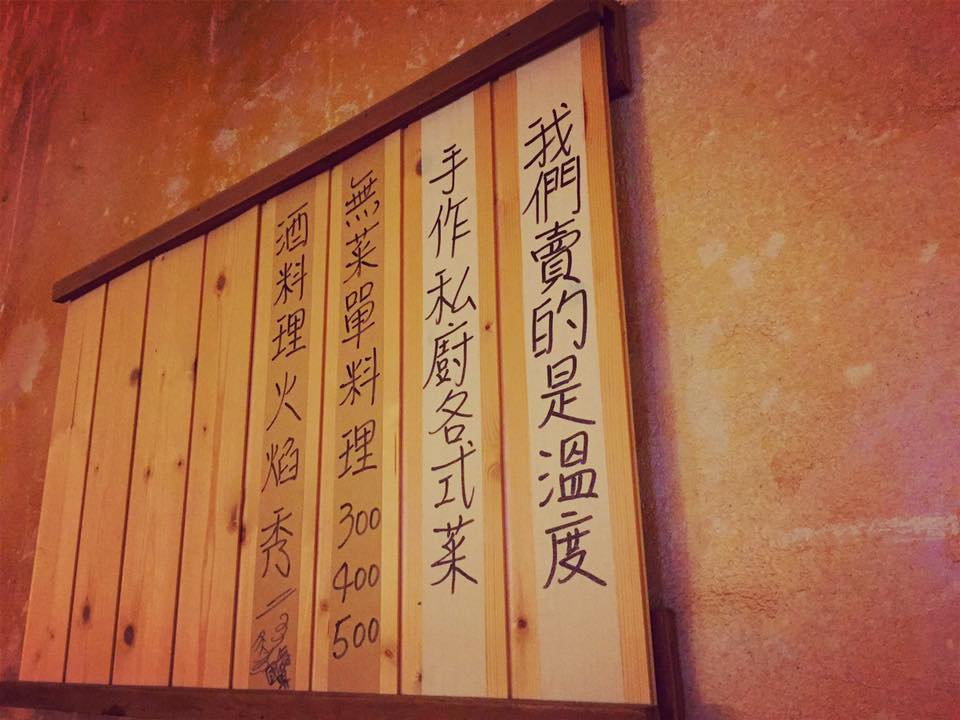 我們賣的是溫度
手作私廚各式菜
無菜單料理 300 400 500
酒料理火焰秀